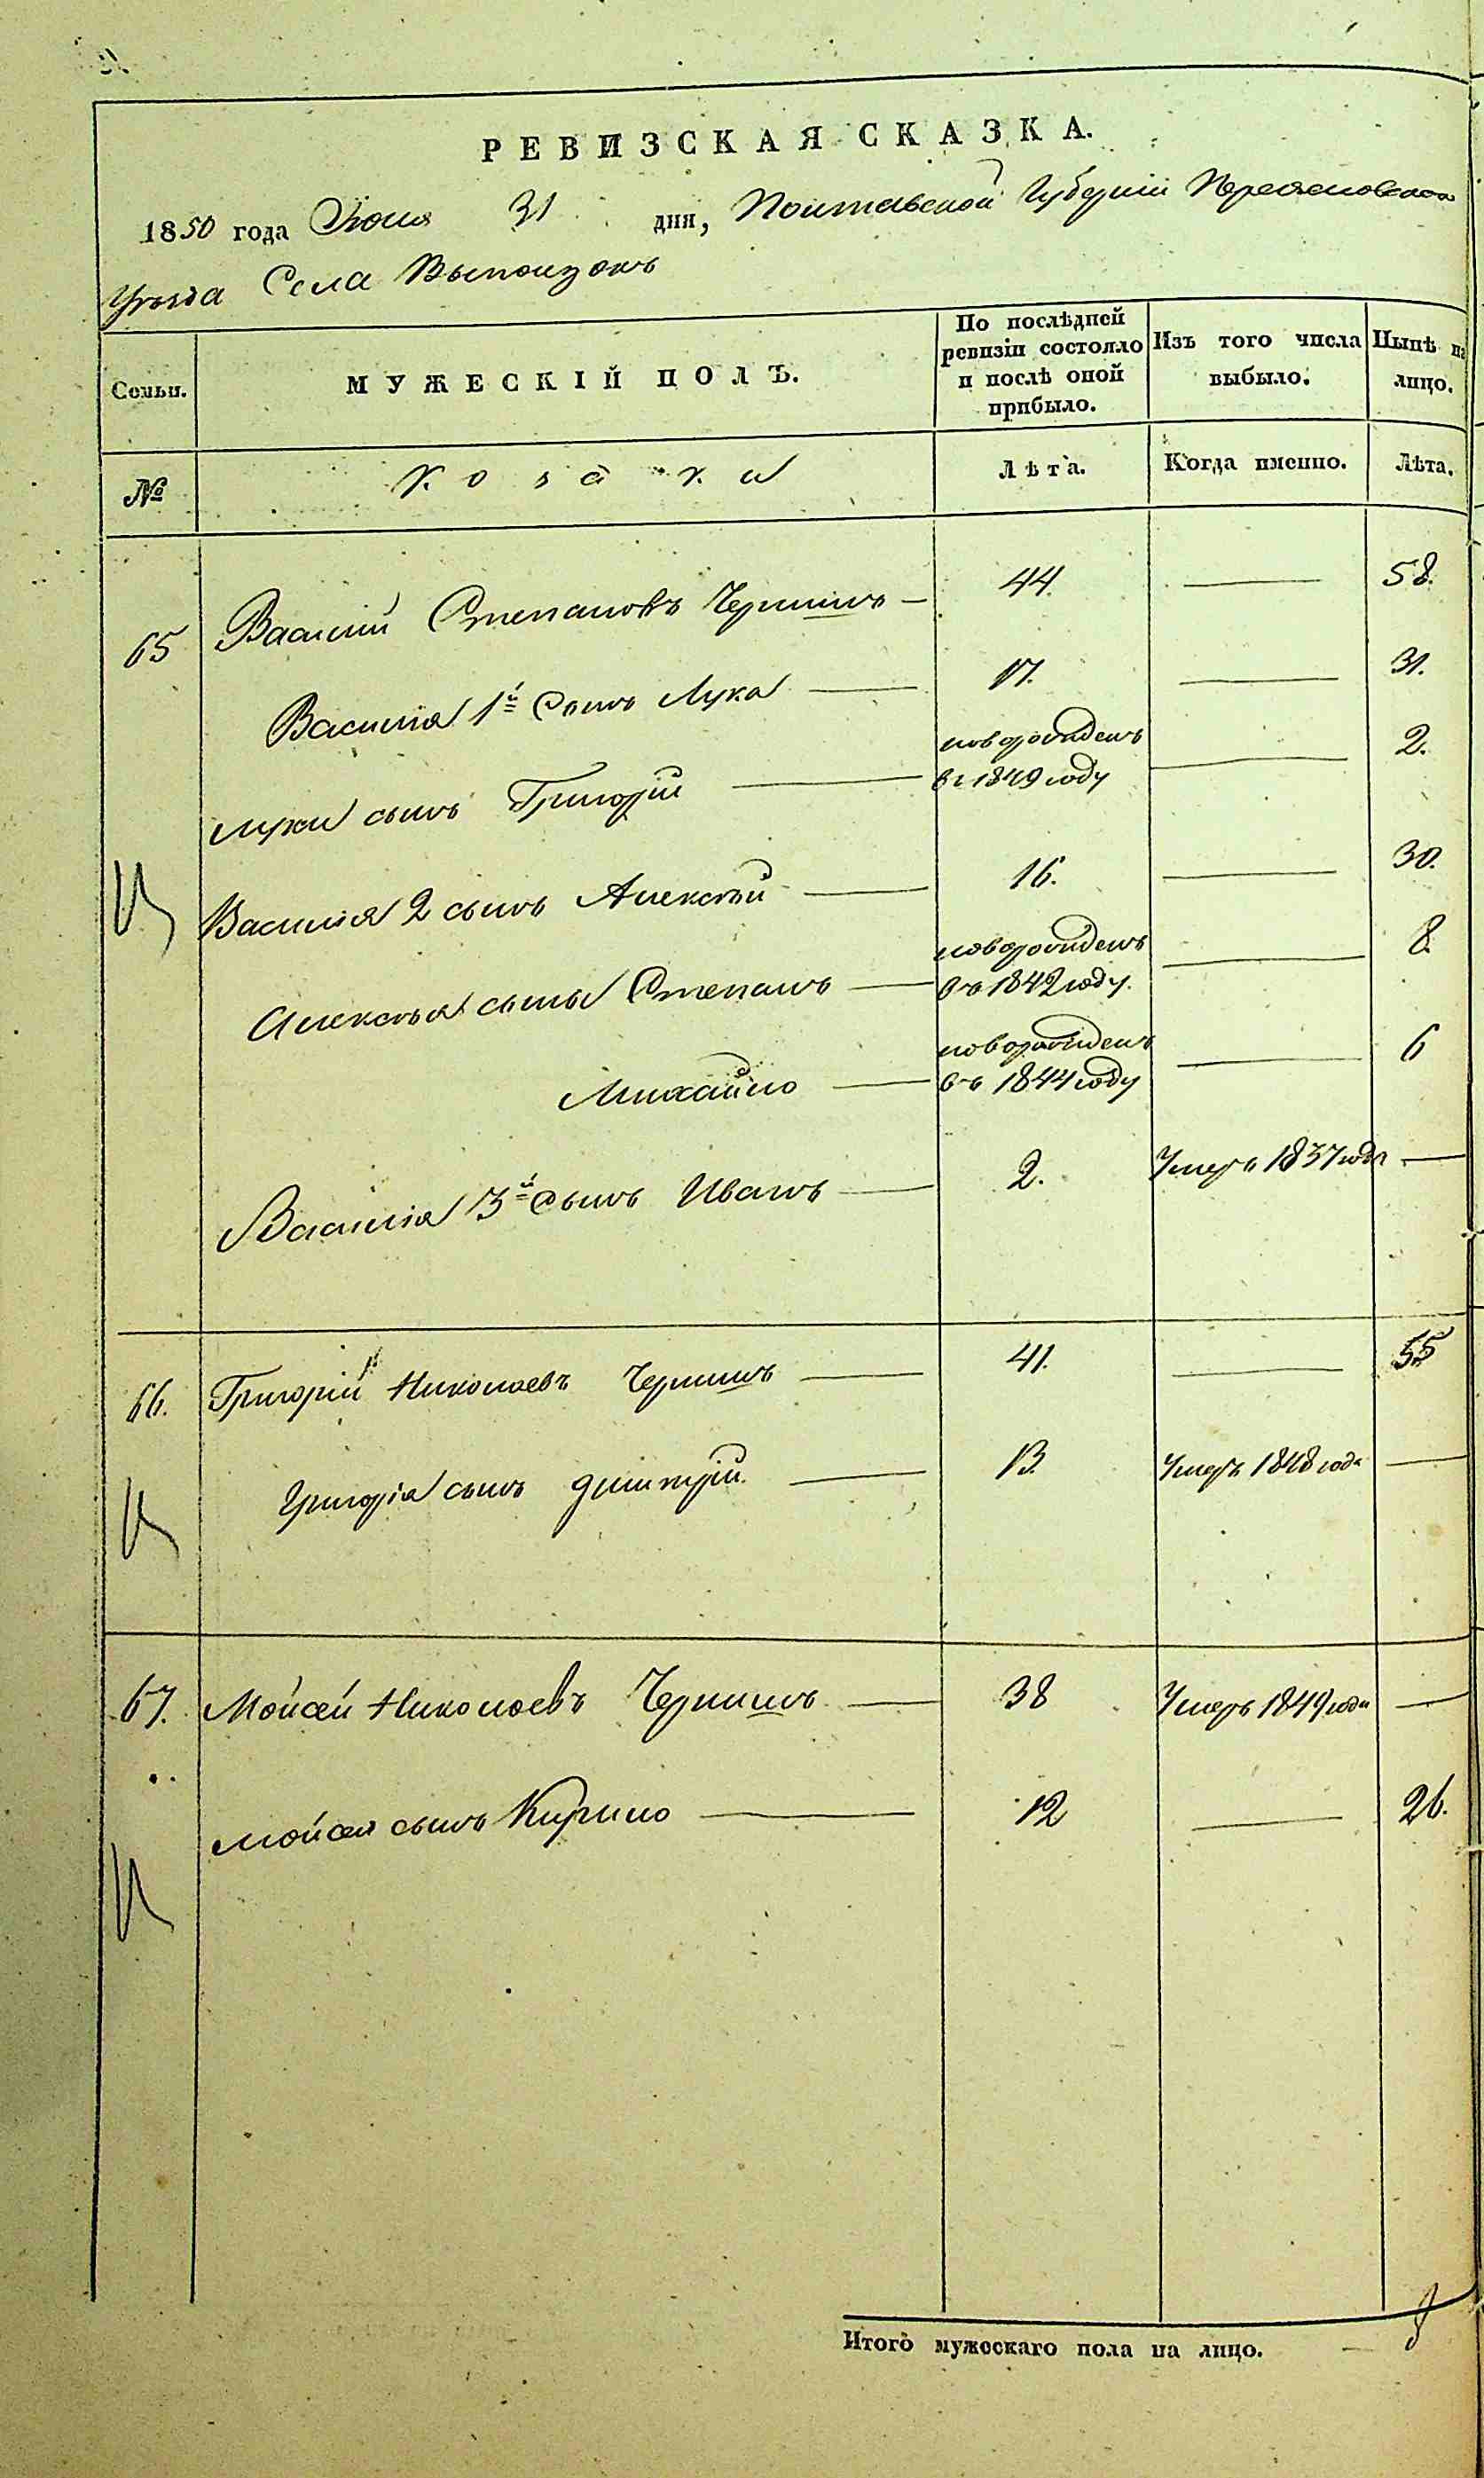 РЕВИЗСКАЯ СКАЗКА.
1850 года Июня 31 дня, Полтавской Губерніи Переяславскаго
Уѣзда Села Выползокъ
Семьи. МУЖЕСКІЙ ПОЛЪ. По послѣдней ревизіи состояло и послѣ оной прибыло. Изъ того числа выбыло. Нынѣ на лицо.
№ Козаки Лѣта. Когда именно. Лѣта.
65 Василий Степановъ Чернишъ — 44. — 58.
Василія 1й Сынъ Лука — 17. — 31.
Луки сынъ Григорій — новорожденъ въ 1849 году — 2.
Василія 2 сынъ Алексѣй — 16. — 30.
Алексѣя сыны Степанъ — новорожденъ въ 1842 году. — 8.
Михайло — новорожденъ въ 1844 году — 6
Василія 3й Сынъ Иванъ — 2. Умеръ 1837 года —
66. Григорій Николаевъ Чернишъ — 41. — 55
Григорія сынъ Дмитрій. — 13. Умеръ 1848 года —
67. Мойсей Николаевъ Чернишъ — 38 Умеръ 1849 года —
Мойсея сынъ Кирило — 12 — 26.
Итого мужескаго пола на лицо. — 8